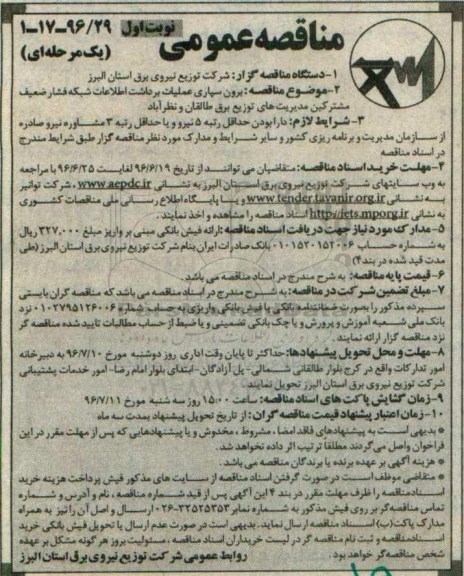 نوبت اول ۹۶/۲۹-۱۷-۱
مناقصه عمومی (یک مرحله ای)
۱-دستگاه مناقصه گزار: شرکت توزیع نیروی برق استان البرز
۲-موضوع مناقصه: برون سپاری عملیات برداشت اطلاعات شبکه فشار ضعیف
مشترکین مدیریت های توزیع برق طالقان و نظرآباد
۳-شرایط لازم: دارا بودن حداقل رتبه ۵ نیرو و یا حداقل رتبه ۳ مشاوره نیرو صادره
از سازمان مدیریت و برنامه ریزی کشور و سایر شرایط و مدارک مورد نظر مناقصه گزار طبق شرایط مندرج
در اسناد مناقصه
۴-مهلت خرید اسناد مناقصه: متقاضیان می توانند از تاریخ ۹۶/۶/۱۹ لغایت ۹۶/۶/۲۵ با مراجعه
به وب سایتهای شرکت توزیع نیروی برق استان البرز به نشانی www.aepdc.ir، شرکت توانیر
به نشانی www.tender.tavanir.org.ir و یا پایگاه اطلاع رسانی ملی مناقصات کشوری
به نشانی http://iets.mporg.ir اسناد مناقصه را مشاهده و اخذ نمایند.
۵-مدارک مورد نیاز جهت دریافت اسناد مناقصه: ارائه فیش بانکی مبنی بر واریز مبلغ ۳۲۷،۰۰۰ ریال
به شماره حساب ۰۱۰۱۵۲۰۱۵۲۰۰۶ بانک صادرات ایران بنام شرکت توزیع نیروی برق استان البرز (طی
مدت قید شده در بند۴)
۶-قیمت پایه مناقصه: به شرح مندرج در اسناد مناقصه می باشد.
۷-مبلغ تضمین شرکت در مناقصه: به شرح مندرج در اسناد مناقصه می باشد که مناقصه گران بایستی
سپرده مذکور را بصورت ضمانتنامه بانکی یا فیش بانکی واریزی به حساب شماره ۰۱۰۲۷۹۵۱۲۶۰۰۶ نزد
بانک ملی شعبه آموزش و پرورش و یا چک بانکی تضمینی و یا ضبط از حساب مطالبات تایید شده مناقصه گر
نزد مناقصه گزار ارائه نمایند.
۸-مهلت و محل تحویل پیشنهادها: حداکثر تا پایان وقت اداری روز دوشنبه مورخ ۹۶/۷/۱۰ به دبیرخانه
امور تدارکات واقع در کرج بلوار طالقانی شمالی- پل آزادگان- ابتدای بلوار امام رضا- امور خدمات پشتیبانی
شرکت توزیع نیروی برق استان البرز تحویل نمایند.
۹-زمان گشایش پاکت های اسناد مناقصه: ساعت ۱۵:۰۰ روز سه شنبه مورخ ۹۶/۷/۱۱
۱۰-زمان اعتبار پیشنهاد قیمت مناقصه گران: از تاریخ تحویل پیشنهاد بمدت سه ماه
* بدیهی است به پیشنهادهای فاقد امضا، مشروط، مخدوش و یا پیشنهادهایی که پس از مهلت مقرر در این
فراخوان واصل می گردند مطلقاً ترتیب اثر داده نخواهد شد.
* هزینه آگهی بر عهده برنده یا برندگان مناقصه می باشد.
* متقاضی موظف است در صورت گرفتن اسناد مناقصه از سایت های مذکور فیش پرداخت هزینه خرید
اسناد مناقصه را ظرف مهلت مقرر در بند ۴ این آگهی پس از قید شماره مناقصه، نام و آدرس و شماره
تماس مناقصه گر بر روی فیش مذکور به شماره نمابر ۳۲۵۲۵۳۵۳-۰۲۶ ارسال و اصل آن را نیز به همراه
مدارک پاکت (ب) اسناد مناقصه ارسال نماید. بدیهی است در صورت عدم ارسال یا تحویل فیش بانکی خرید
اسناد مناقصه و ثبت نام مناقصه گر در لیست خریداران اسناد مناقصه، مسئولیت بروز هر گونه مشکل بر عهده
شخص مناقصه گر خواهد بود.
روابط عمومی شرکت توزیع نیروی برق استان البرز